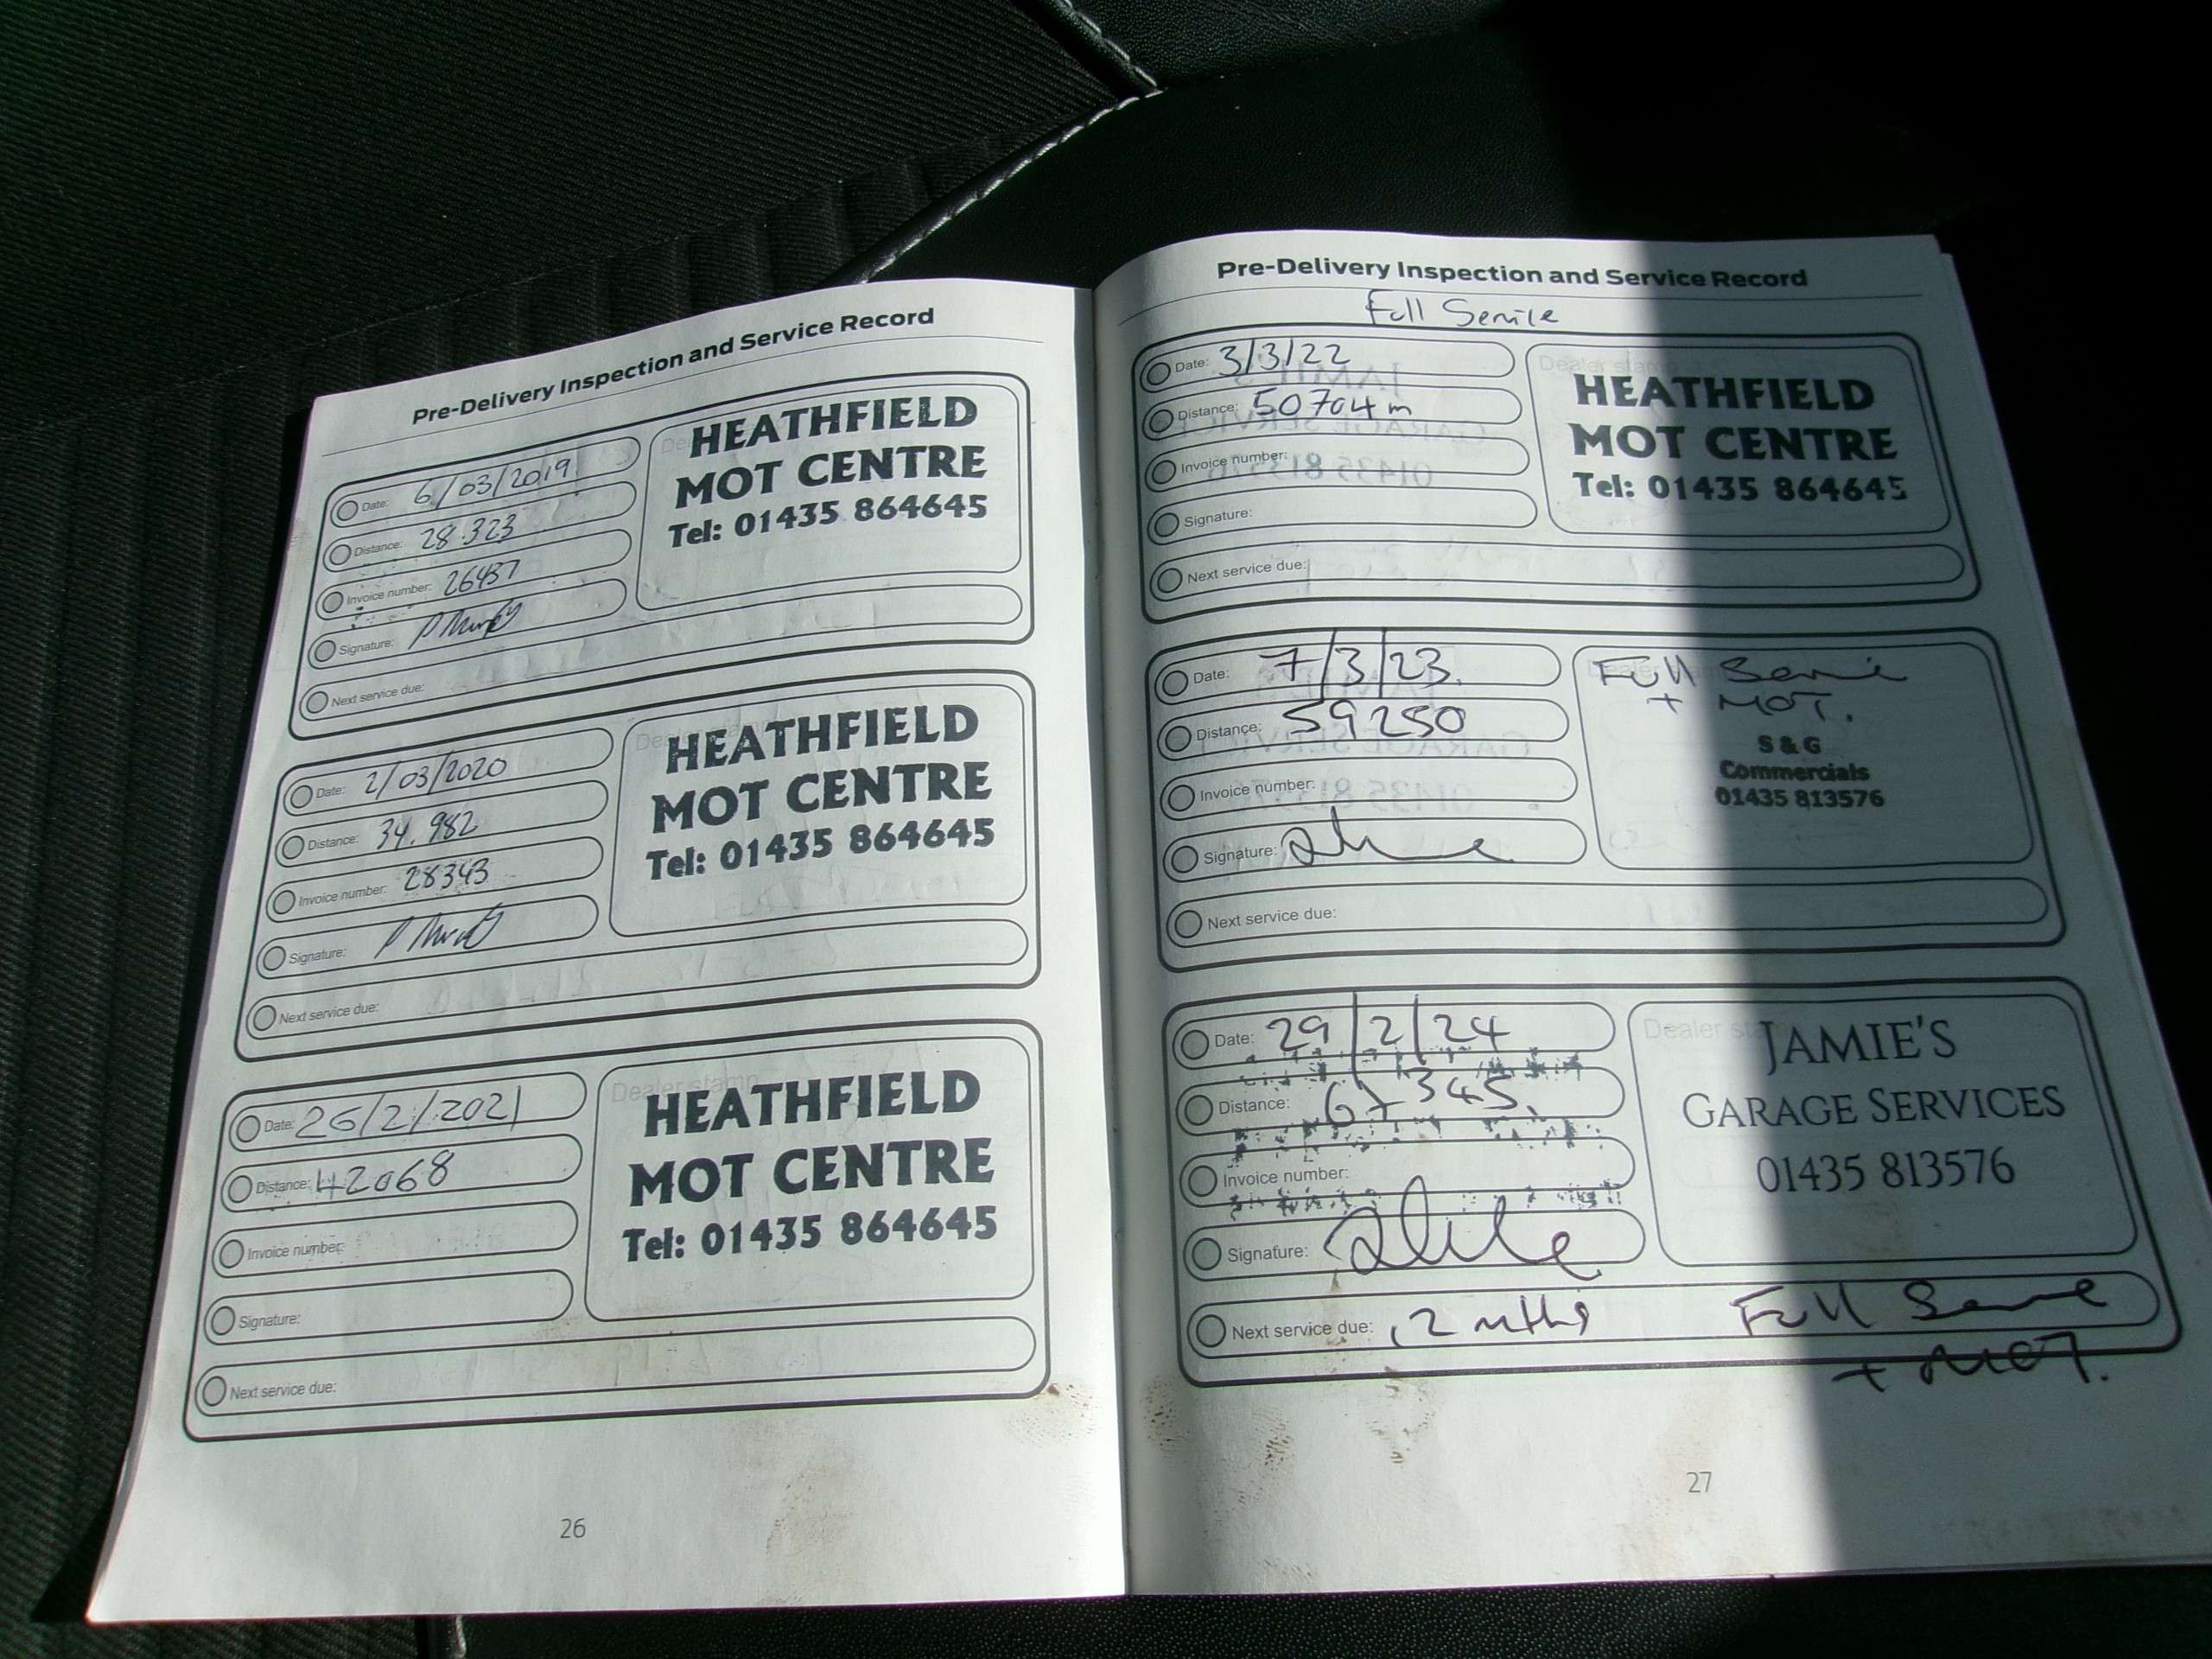 Pre-Delivery Inspection and Service Record
Date: 6/03/2019
Distance: 28.323
Invoice number: 26437
Signature:
Next service due:
HEATHFIELD
MOT CENTRE
Tel: 01435 864645
Date: 2/03/2020
Distance: 34.982
Invoice number: 28343
Signature:
Next service due:
Dealer stamp
HEATHFIELD
MOT CENTRE
Tel: 01435 864645
Date: 26/2/2021
Distance: 42068
Invoice number:
Signature:
Next service due:
Dealer stamp
HEATHFIELD
MOT CENTRE
Tel: 01435 864645
26
Pre-Delivery Inspection and Service Record
Full Service
Date: 3/3/22
Distance: 50704m
Invoice number:
Signature:
Next service due:
Dealer stamp
HEATHFIELD
MOT CENTRE
Tel: 01435 864645
Date: 7/3/23.
Distance: 59250
Invoice number:
Signature:
Next service due:
Full Service
+ MOT.
S & G
Commercials
01435 813576
Date: 29/2/24
Distance: 67345.
Invoice number:
Signature:
Next service due: 12 mths Full Service
+ MOT.
Dealer stamp
JAMIE'S
GARAGE SERVICES
01435 813576
27